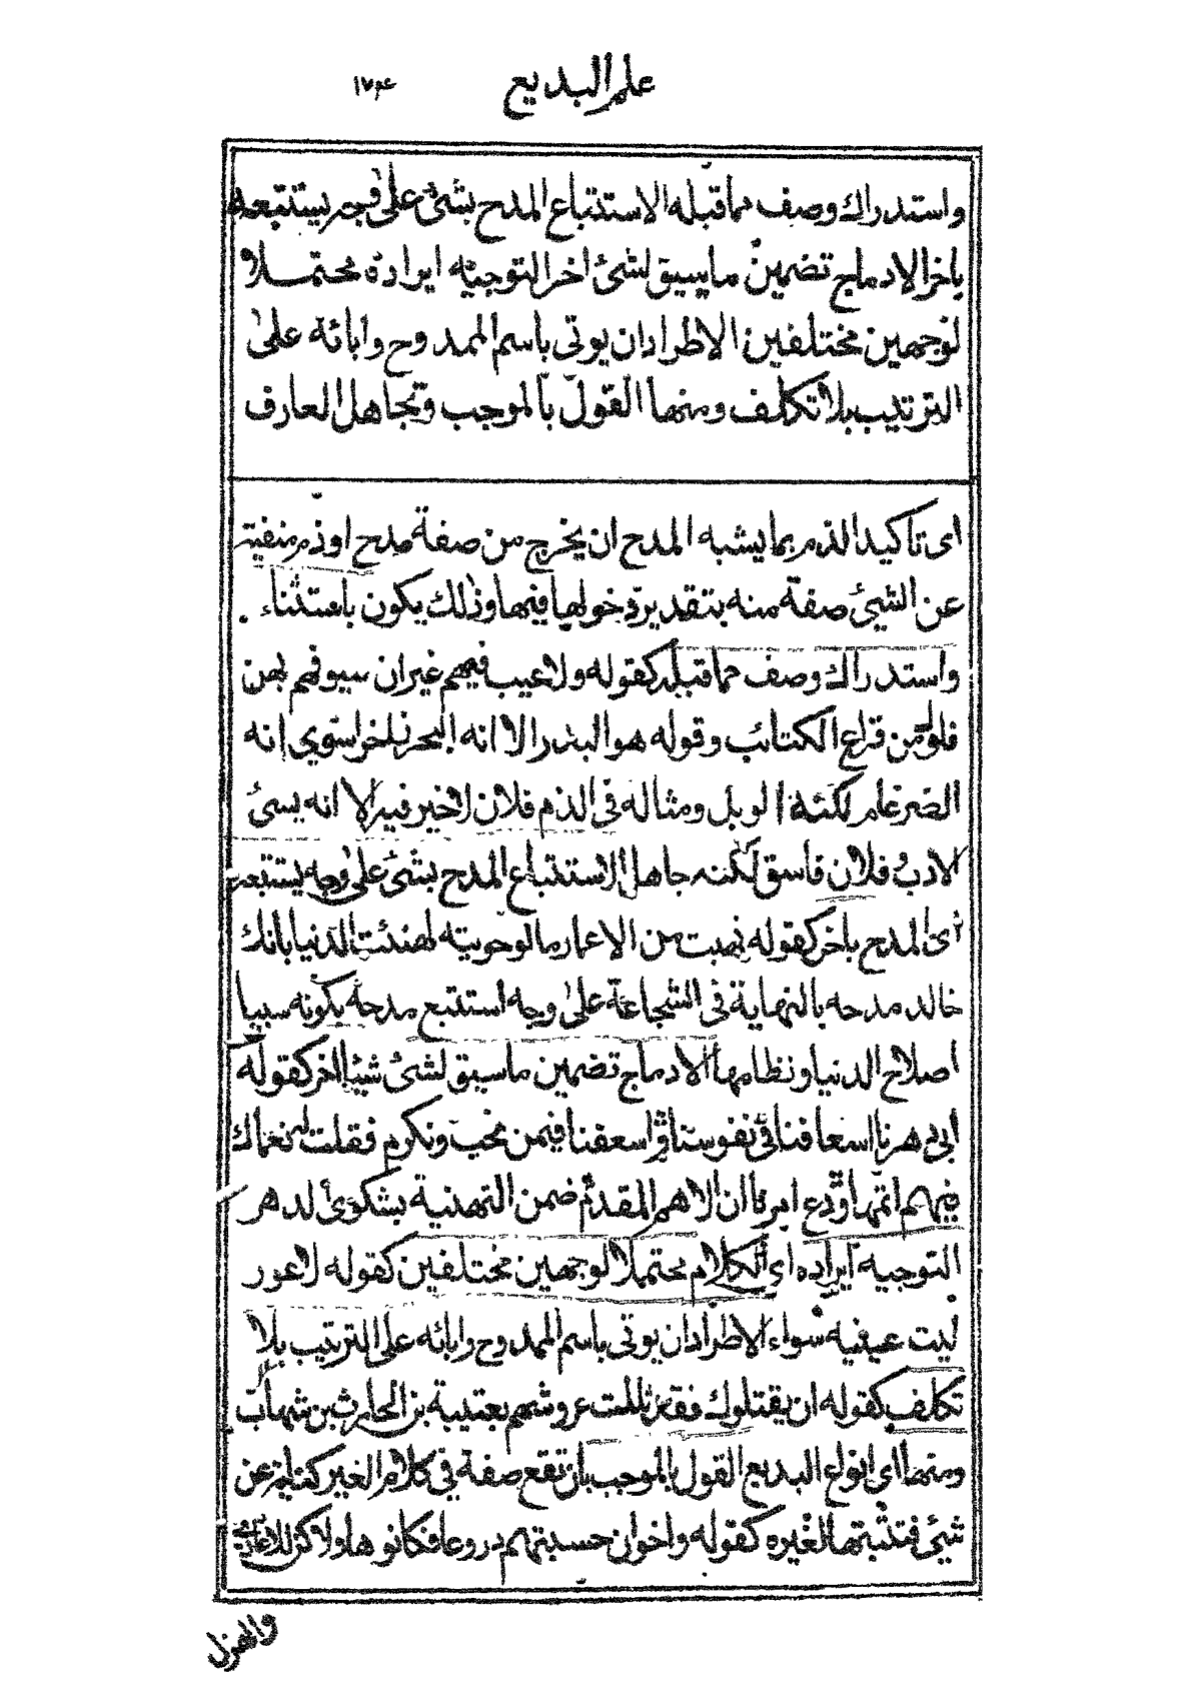 علم البديع ١٧٤
واستدراك وصف مما قبله الاستتباع المدح بشئ على وجه يستتبعه
باخر الادماج تضمين ما يسيق لشئ اخر التوجيه ايراده محتملا
لوجهين مختلفين الاطراد ان يوتى باسم الممدوح وابائه على
الترتيب بلا تكلف ومنها القول بالموجب وتجاهل العارف
اى تاكيد الذم بما يشبه المدح ان يخرج من صفة مدح او ذم منفية
عن الشيئ صفة منه بتقدير دخولها فيها وذلك يكون باستثناء .
واستدراك وصف مما قبله كقوله ولا عيب فيهم غير ان سيوفهم بهن
فلول من قراع الكتائب وقوله هو البدر الا انه البحر زاخرا سوي انه
الضرغام لكنه الوبل ومثاله فى الذم فلان لا خير فيه الا انه يسئ
الادب فلان فاسق لكنه جاهل الاستتباع المدح بشئ على وجه يستتبعه
اى المدح باخر كقوله نهبت من الاعمار ما لو حويته لهنئت الدنيا بانك
خالد مدحه بالنهاية فى الشجاعة على وجه استتبع مدحه بكونه سببا
اصلاح الدنيا ونظامها الادماج تضمين ما سيق لشئ شيئا اخر كقوله
ابى دهرنا اسعافنا فى نفوسنا واسعفنا فيمن نحب ونكرم فقلت له نعماك
فيهم اتمها ودع امرنا ان الاهم المقدم ضمن التهنية بشكوى الدهر
التوجيه ايراده اى الكلام محتملا لوجهين مختلفين كقوله لاعور
ليت عيفيه سواء الاطراد ان يوتى باسم الممدوح وابائه على الترتيب بلا
تكلف كقوله ان يقتلوك فقد ثللت عروشهم بعتيبة بن الحارث بن شهاب
ومنها اى انواع البديع القول بالموجب بان تقع صفة فى كلام الغير كناية عن
شيئ فتثبتها لغيره كقوله واخوان حسبتهم دروعا فكانوها ولاكن للاعادى
والهزل